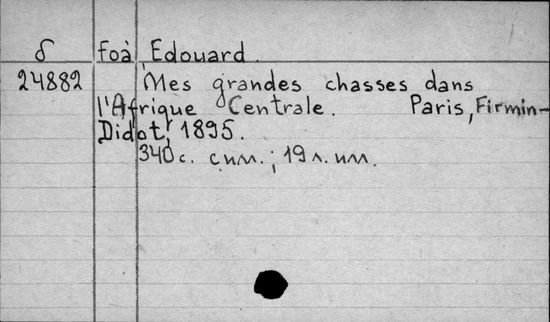 δ Foà Edouard.
24882 Mes grandes chasses dans
l'Afrique Centrale. Paris, Firmin-
Didot, 1895.
340 с. с илл.; 19 л. илл.